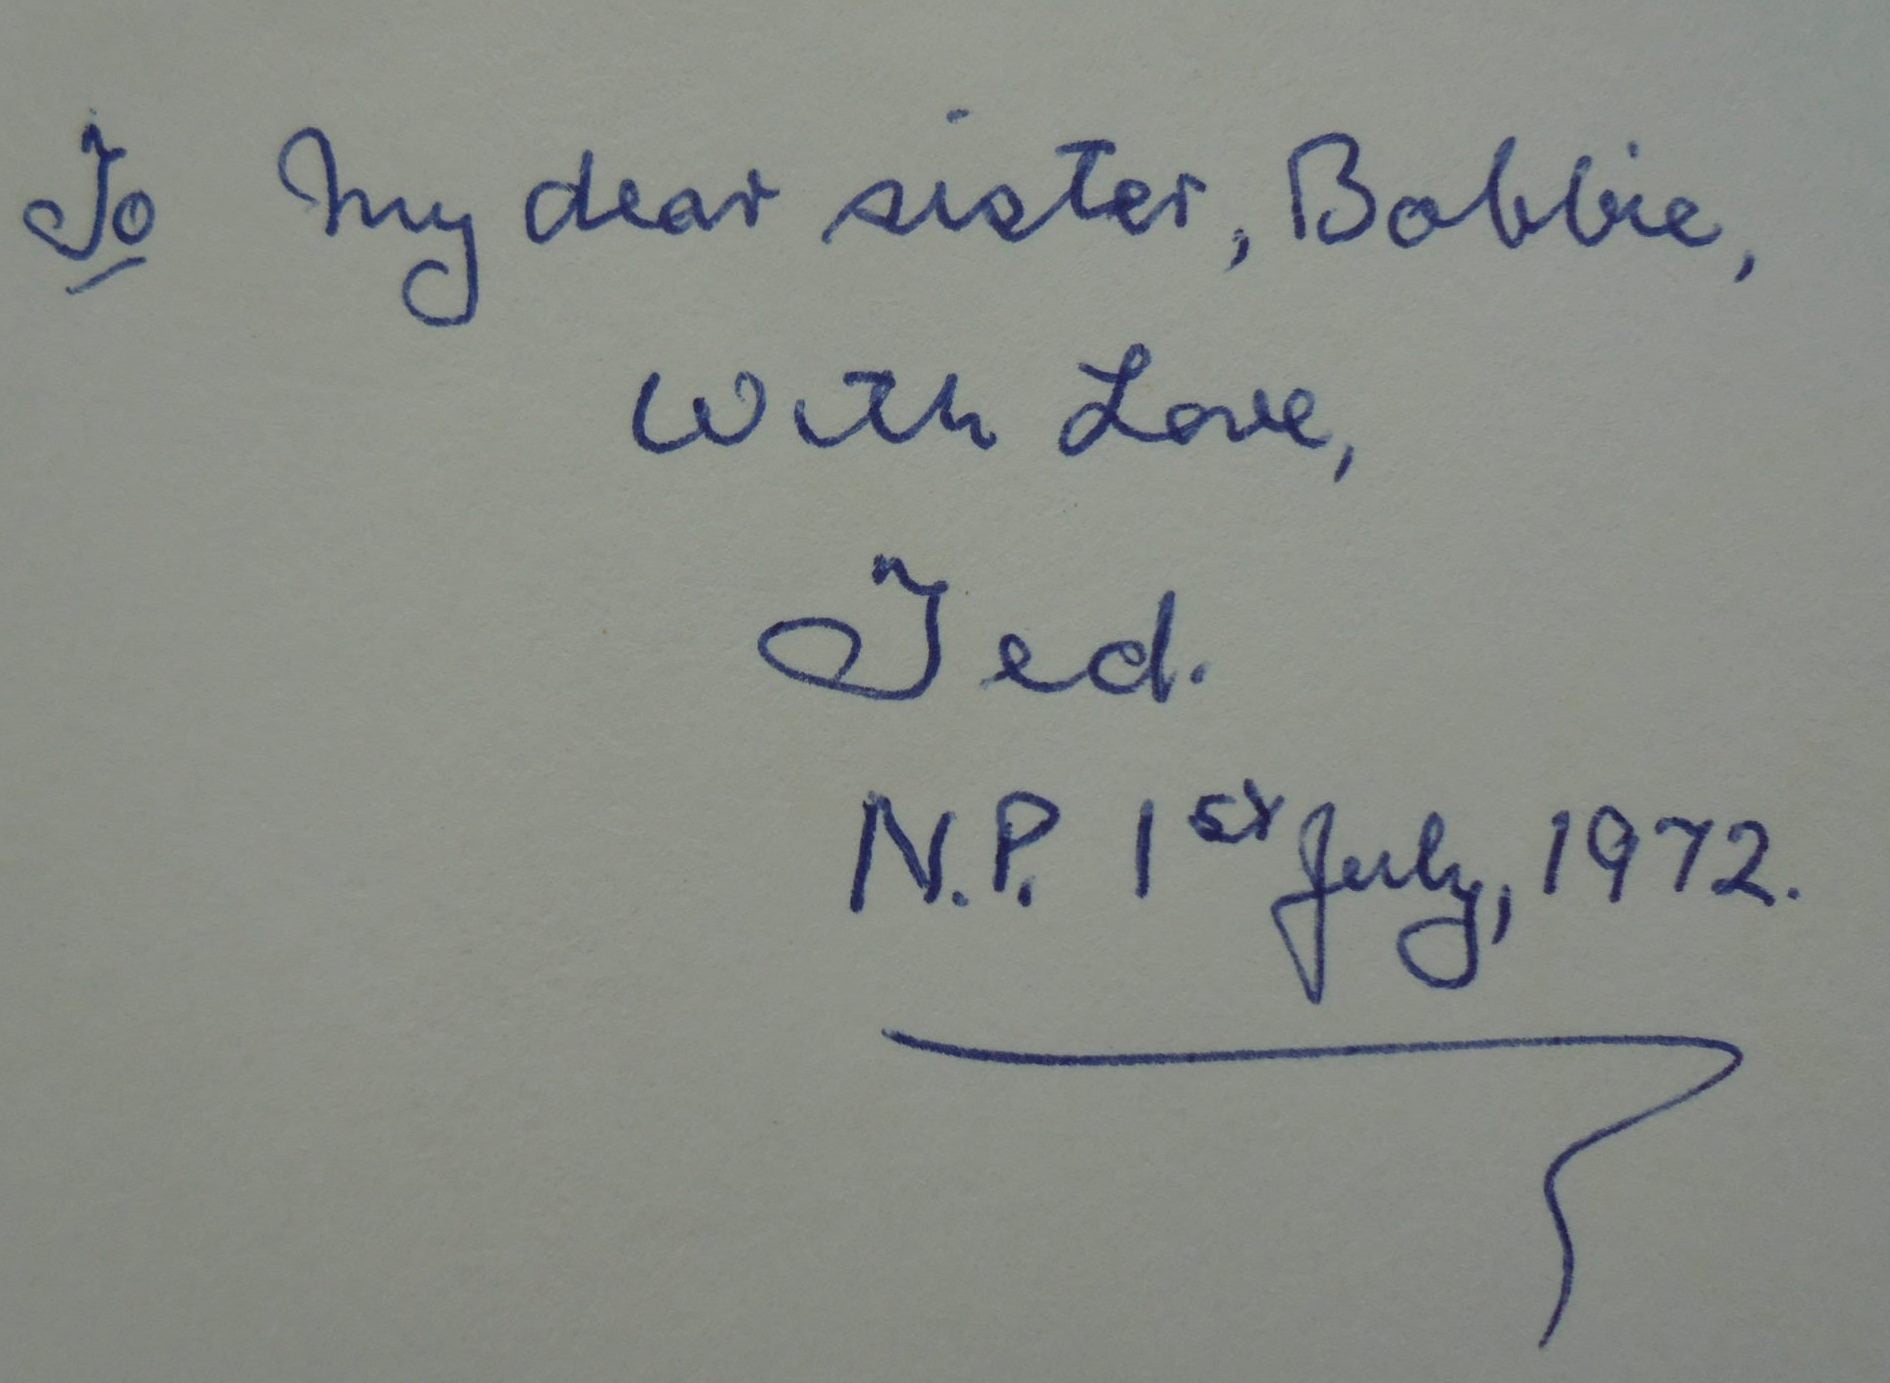 To My dear sister, Bobbie,
With Love,
Ted.
N.P. 1st July, 1972.